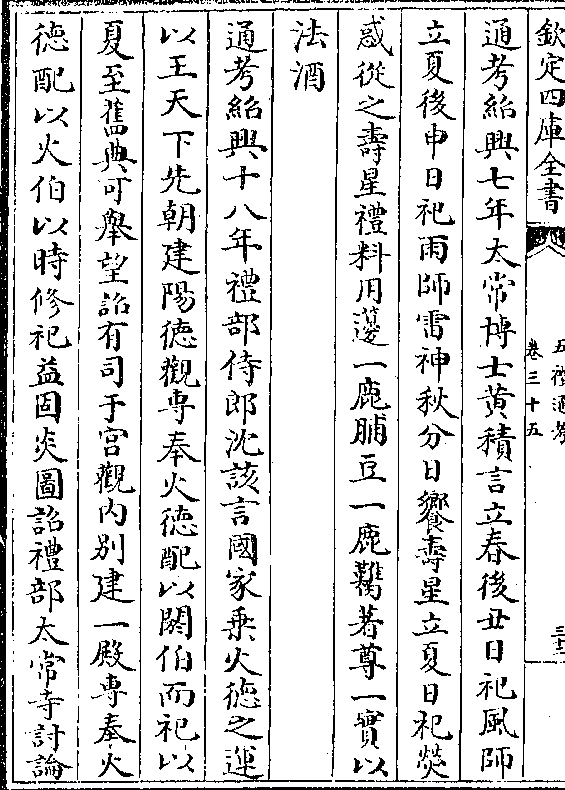 欽定四庫全書
五禮通考
卷三十五
三十二
通考紹興七年太常博士黃積言立春後丑日祀風師
立夏後申日祀雨師雷神秋分日饗壽星立夏日祀熒
惑從之壽星禮料用籩一鹿脯豆一鹿臡著尊一實以
法酒
通考紹興十八年禮部侍郎沈該言國家乗火德之運
以王天下先朝建陽德觀専奉火德配以閼伯而祀以
夏至舊典可舉望詔有司于宫觀内別建一殿專奉火
德配以火伯以時修祀益固炎圖詔禮部太常寺討論